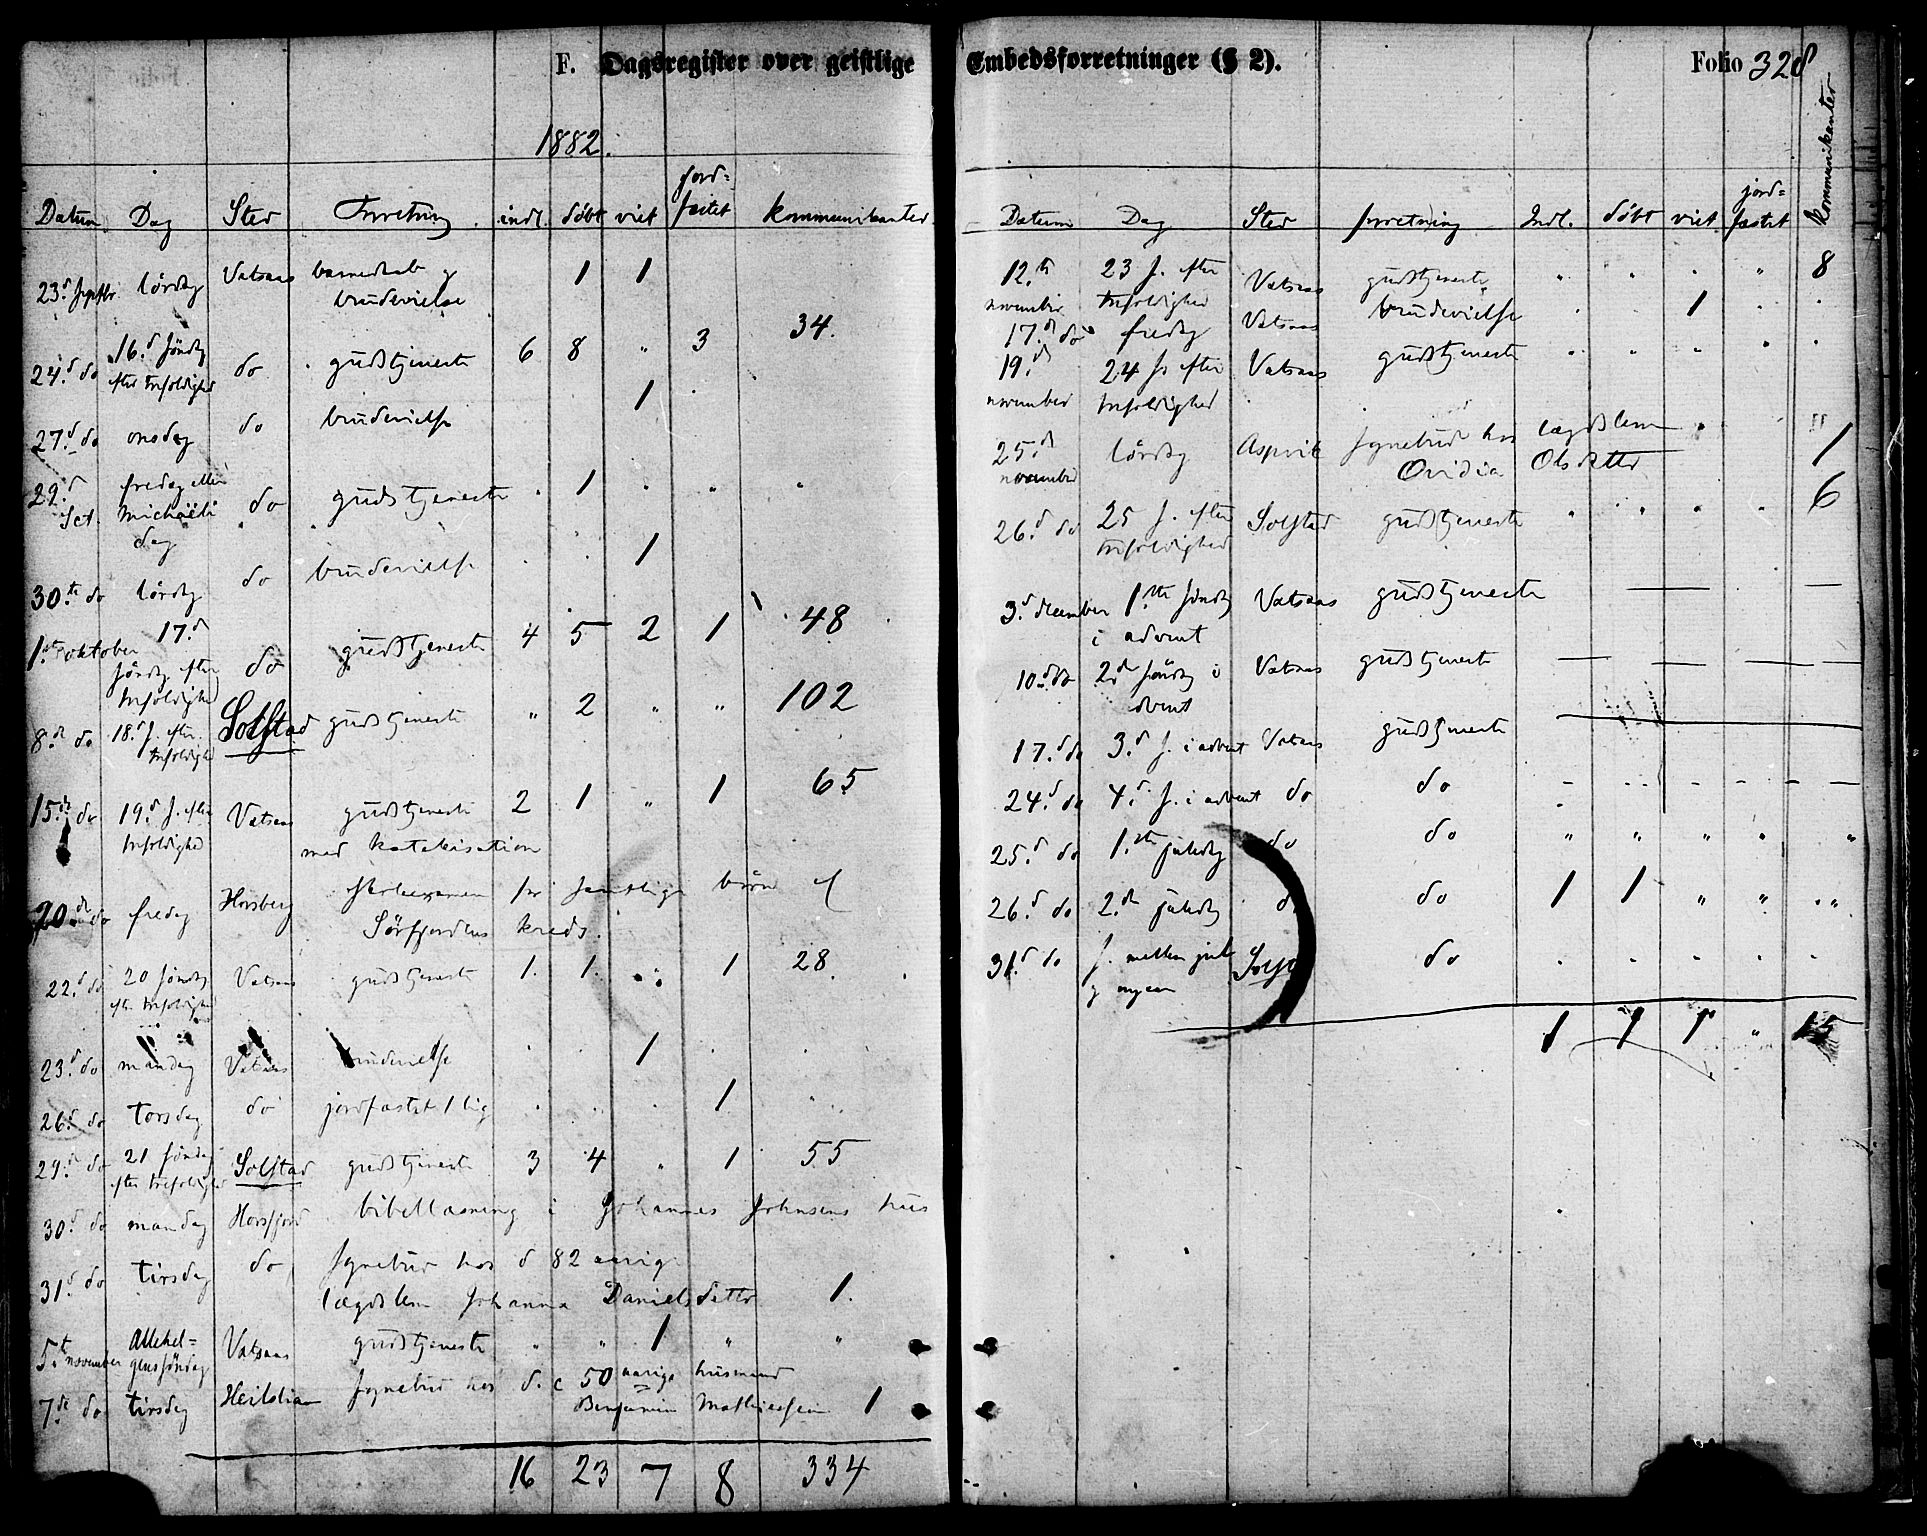 F. Dagsregister over geistlige Embedsforretninger (§ 2). Folio 328
1882.
Datum Dag Sted Forretning indl. døbt viet jord=fæstet kommunikanter
23.d septbr lørdag Vatsaas barnedaab og brudevielse 1 1
24.d do 16.d søndag efter trefoldighed do gudstjeneste 6 8 " 3 34.
27.d do onsdag do brudevielse 1
29.d fredag eller Sct. Michaeli dag do gudstjeneste 1
30.te do lørdag do brudevielse 1
1.ste oktober 17.d søndag efter trefoldighed do gudstjeneste 4 5 2 1 48
8.de do 18.d s. efter trefoldighed Solstad gudstjeneste " 2 " " 102
15.de do 19.d s. efter trefoldighed Vatsaas gudstjeneste 2 1 " 1 65
med katekisation
20.de do fredag Horsberg skoleexamen for samtlige børn af
Sørfjordens kreds.
22.d do 20 søndag eft. trefoldighed Vatsaas gudstjeneste 1. 1. " 1 28
23.d do mandag Vatsaas brudevielse 1
26.d do torsdag do jordfæstet 1 lig 1
29.de do 21 søndag efter trefoldighed Solstad gudstjeneste 3 4 " 1 55
30.d do mandag Horsfjord bibellæsning i Johannes Johnsens hus
31.d do tirsdag do sognebud hos d 82 aarige
lægdslem Johanna Danielsdatter 1.
5.t november Allehelgenssøndag Vatsaas gudstjeneste " " 1 " "
7.de do tirsdag sognebud hos d. c 50 aarige husmand
Benjamin Mathiessen 1
16 23 7 8 334
Datum Dag Sted forretning Indl. døbt viet jord=fæstet kommunikanter
12.te november 23 s. efter trefoldighed Vatsaas gudstjeneste " " " " 8
17.de do fredag Vatsaas brudevielse 1
19.d november 24 s. efter trefoldighed Vatsaas gudstjeneste " " " " "
25.d november lørdag Aspvik sognebud hos lægdslem
Ovidia Olsdatter 1
26.d do 25 s. efter trefoldighed Solstad gudstjeneste " " " " 6
3.d december 1.ste søndag i advent Vatsaas gudstjeneste — —
10.d do 2.d søndag i advent Vatsaas gudstjeneste — — — —
17.d do 3.d s. i advent Vatsaas gudstjeneste
24.d do 4.d s. i advent do do - - - - -
25.d do 1.ste juledag do do " " " " "
26.d do 2.de juledag do do 1 1 " " "
31.d do s. mellem jul og nyaar do
1 1 1 " 15